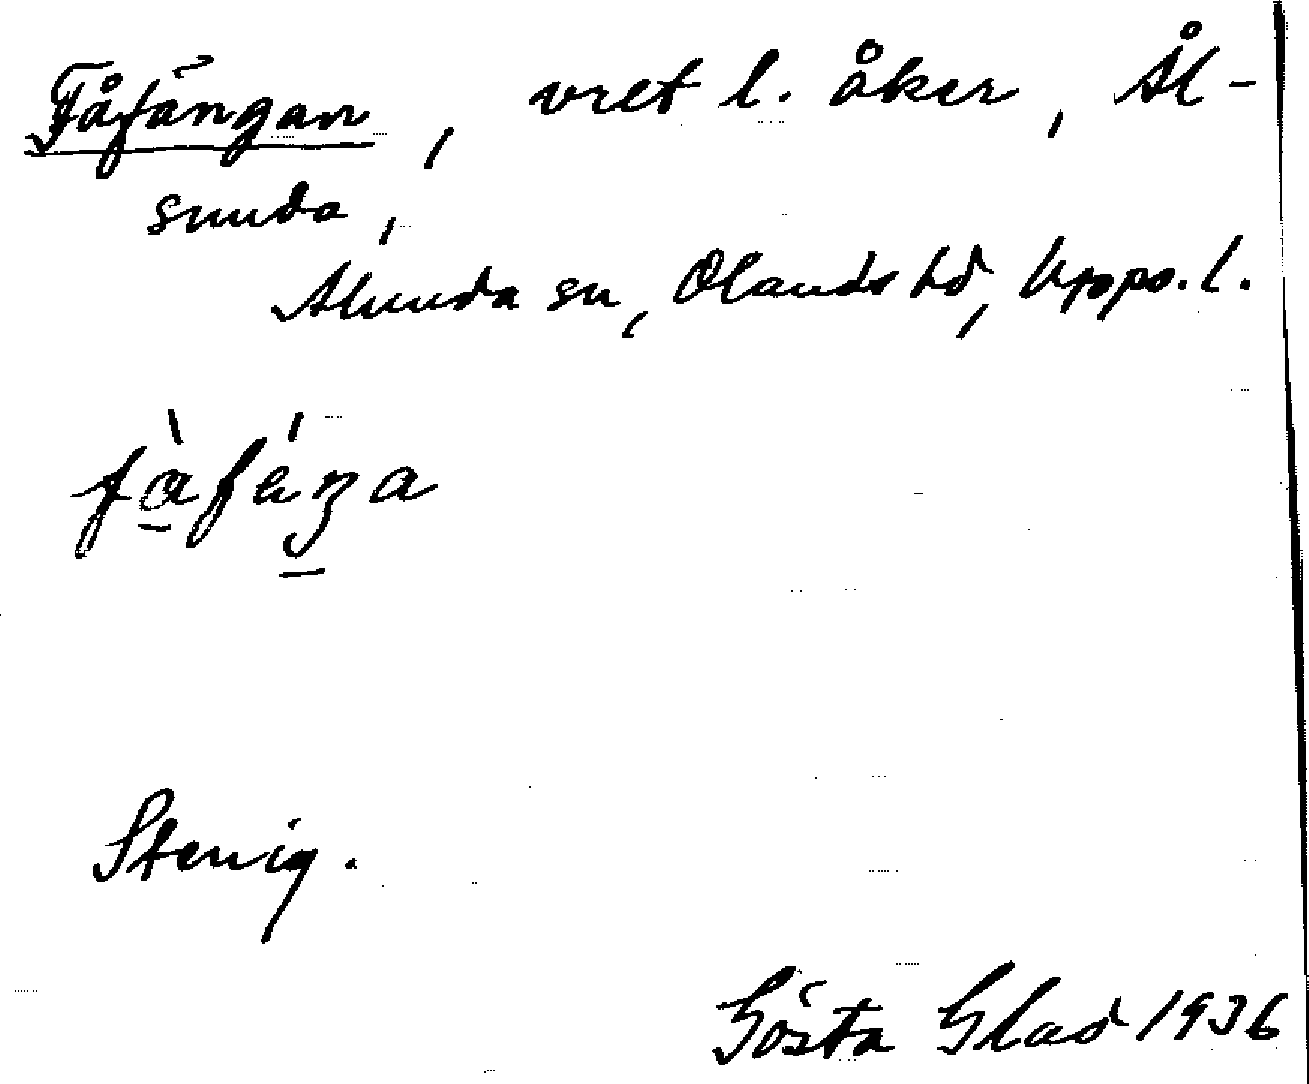 Fåfängan, vret l. åker, Ål-
sunda,
Alunda sn, Olands hd, Upps. l.
fàfáŋa
Stenig.
Gösta Glad 1936